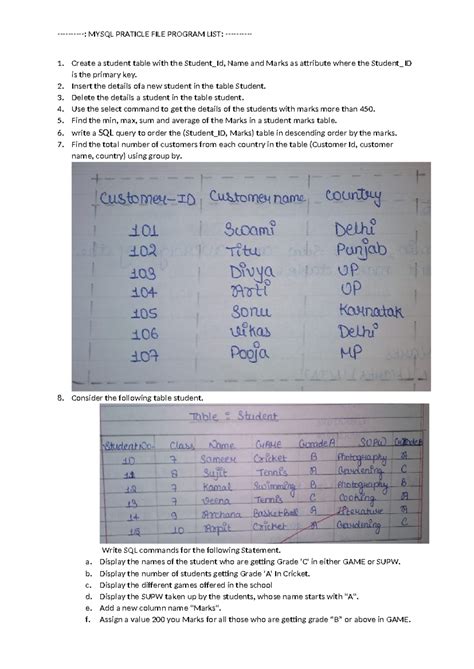 ----------: MYSQL PRATICLE FILE PROGRAM LIST: ----------
1. Create a student table with the Student_Id, Name and Marks as attribute where the Student_ ID
is the primary key.
2. Insert the details ofa new student in the table Student.
3. Delete the details a student in the table student.
4. Use the select command to get the details of the students with marks more than 450.
5. Find the min, max, sum and average of the Marks in a student marks table.
6. write a SQL query to order the (Student_ID, Marks) table in descending order by the marks.
7. Find the total number of customers from each country in the table (Customer Id, customer
name, country) using group by.
Customer-ID Customer name Country
101 Swami Delhi
102 Titu Punjab
103 Divya UP
104 Arti UP
105 Sonu Karnatak
106 Vikas Delhi
107 Pooja MP
8. Consider the following table student.
Table : Student
StudentNo. Class Name GAME Grade A SUPW
10 7 Sameer Cricket B Photography A
11 8 Sujit Tennis A Gardening C
12 7 Kamal Swimming B Photography B
13 7 Veena Tennis C Cooking A
14 9 Archana BasketBall A Literature A
15 10 Arpit Cricket A Gardening C
Write SQL commands for the following Statement.
a. Display the names of the student who are getting Grade 'C' in either GAME or SUPW.
b. Display the number of students getting Grade 'A' In Cricket.
c. Display the different games offered in the school
d. Display the SUPW taken up by the students, whose name starts with "A".
e. Add a new column name "Marks".
f. Assign a value 200 you Marks for all those who are getting grade "B" or above in GAME.